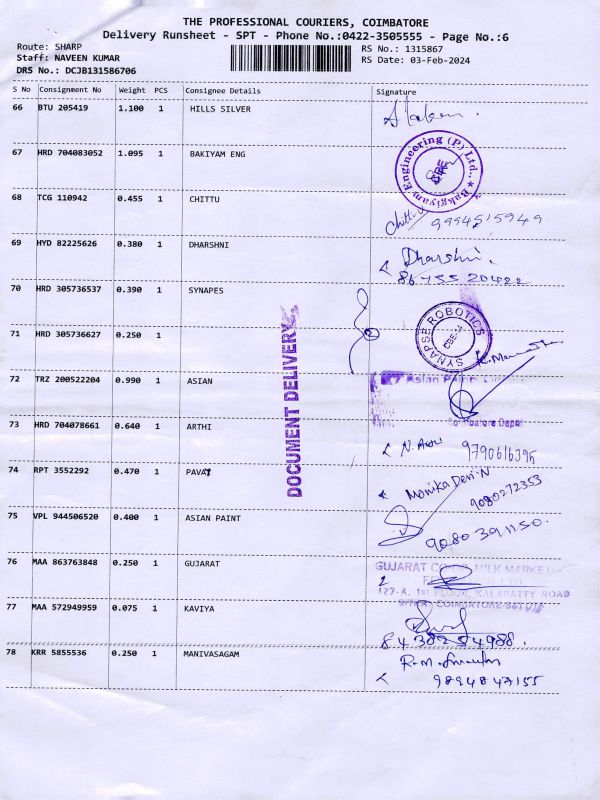 THE PROFESSIONAL COURIERS, COIMBATORE
Delivery Runsheet - SPT - Phone No.:0422-3505555 - Page No.:6
Route: SHARP
Staff: NAVEEN KUMAR
DRS No.: DCJB131586706
RS No.: 1315867
RS Date: 03-Feb-2024
S No Consignment No Weight PCS Consignee Details Signature
66 BTU 205419 1.100 1 HILLS SILVER
67 HRD 704083052 1.095 1 BAKIYAM ENG
Bakgiyam Engineering (P) Ltd.,
CBE
68 TCG 110942 0.455 1 CHITTU
Chittu 9994515949
69 HYD 82225626 0.380 1 DHARSHNI
Dharshni.
86 155 20422
70 HRD 305736537 0.390 1 SYNAPES
SYNAPSE ROBOTICS
CBE-14
71 HRD 305736627 0.250 1
DOCUMENT DELIVERY
72 TRZ 200522204 0.990 1 ASIAN
Asian Paints
Coimbatore Depot
73 HRD 704078661 0.640 1 ARTHI
9790616395
74 RPT 3552292 0.470 1 PAVAY
Monika Devi.N
9080272353
75 VPL 944506520 0.400 1 ASIAN PAINT
9080391150.
76 MAA 863763848 0.250 1 GUJARAT
GUJARAT CO-OP MILK MARKETI
127-A, 1st FLOOR, KALAPATTY ROAD
77 MAA 572949959 0.075 1 KAVIYA
8438254988.
78 KRR 5855536 0.250 1 MANIVASAGAM
9894847155